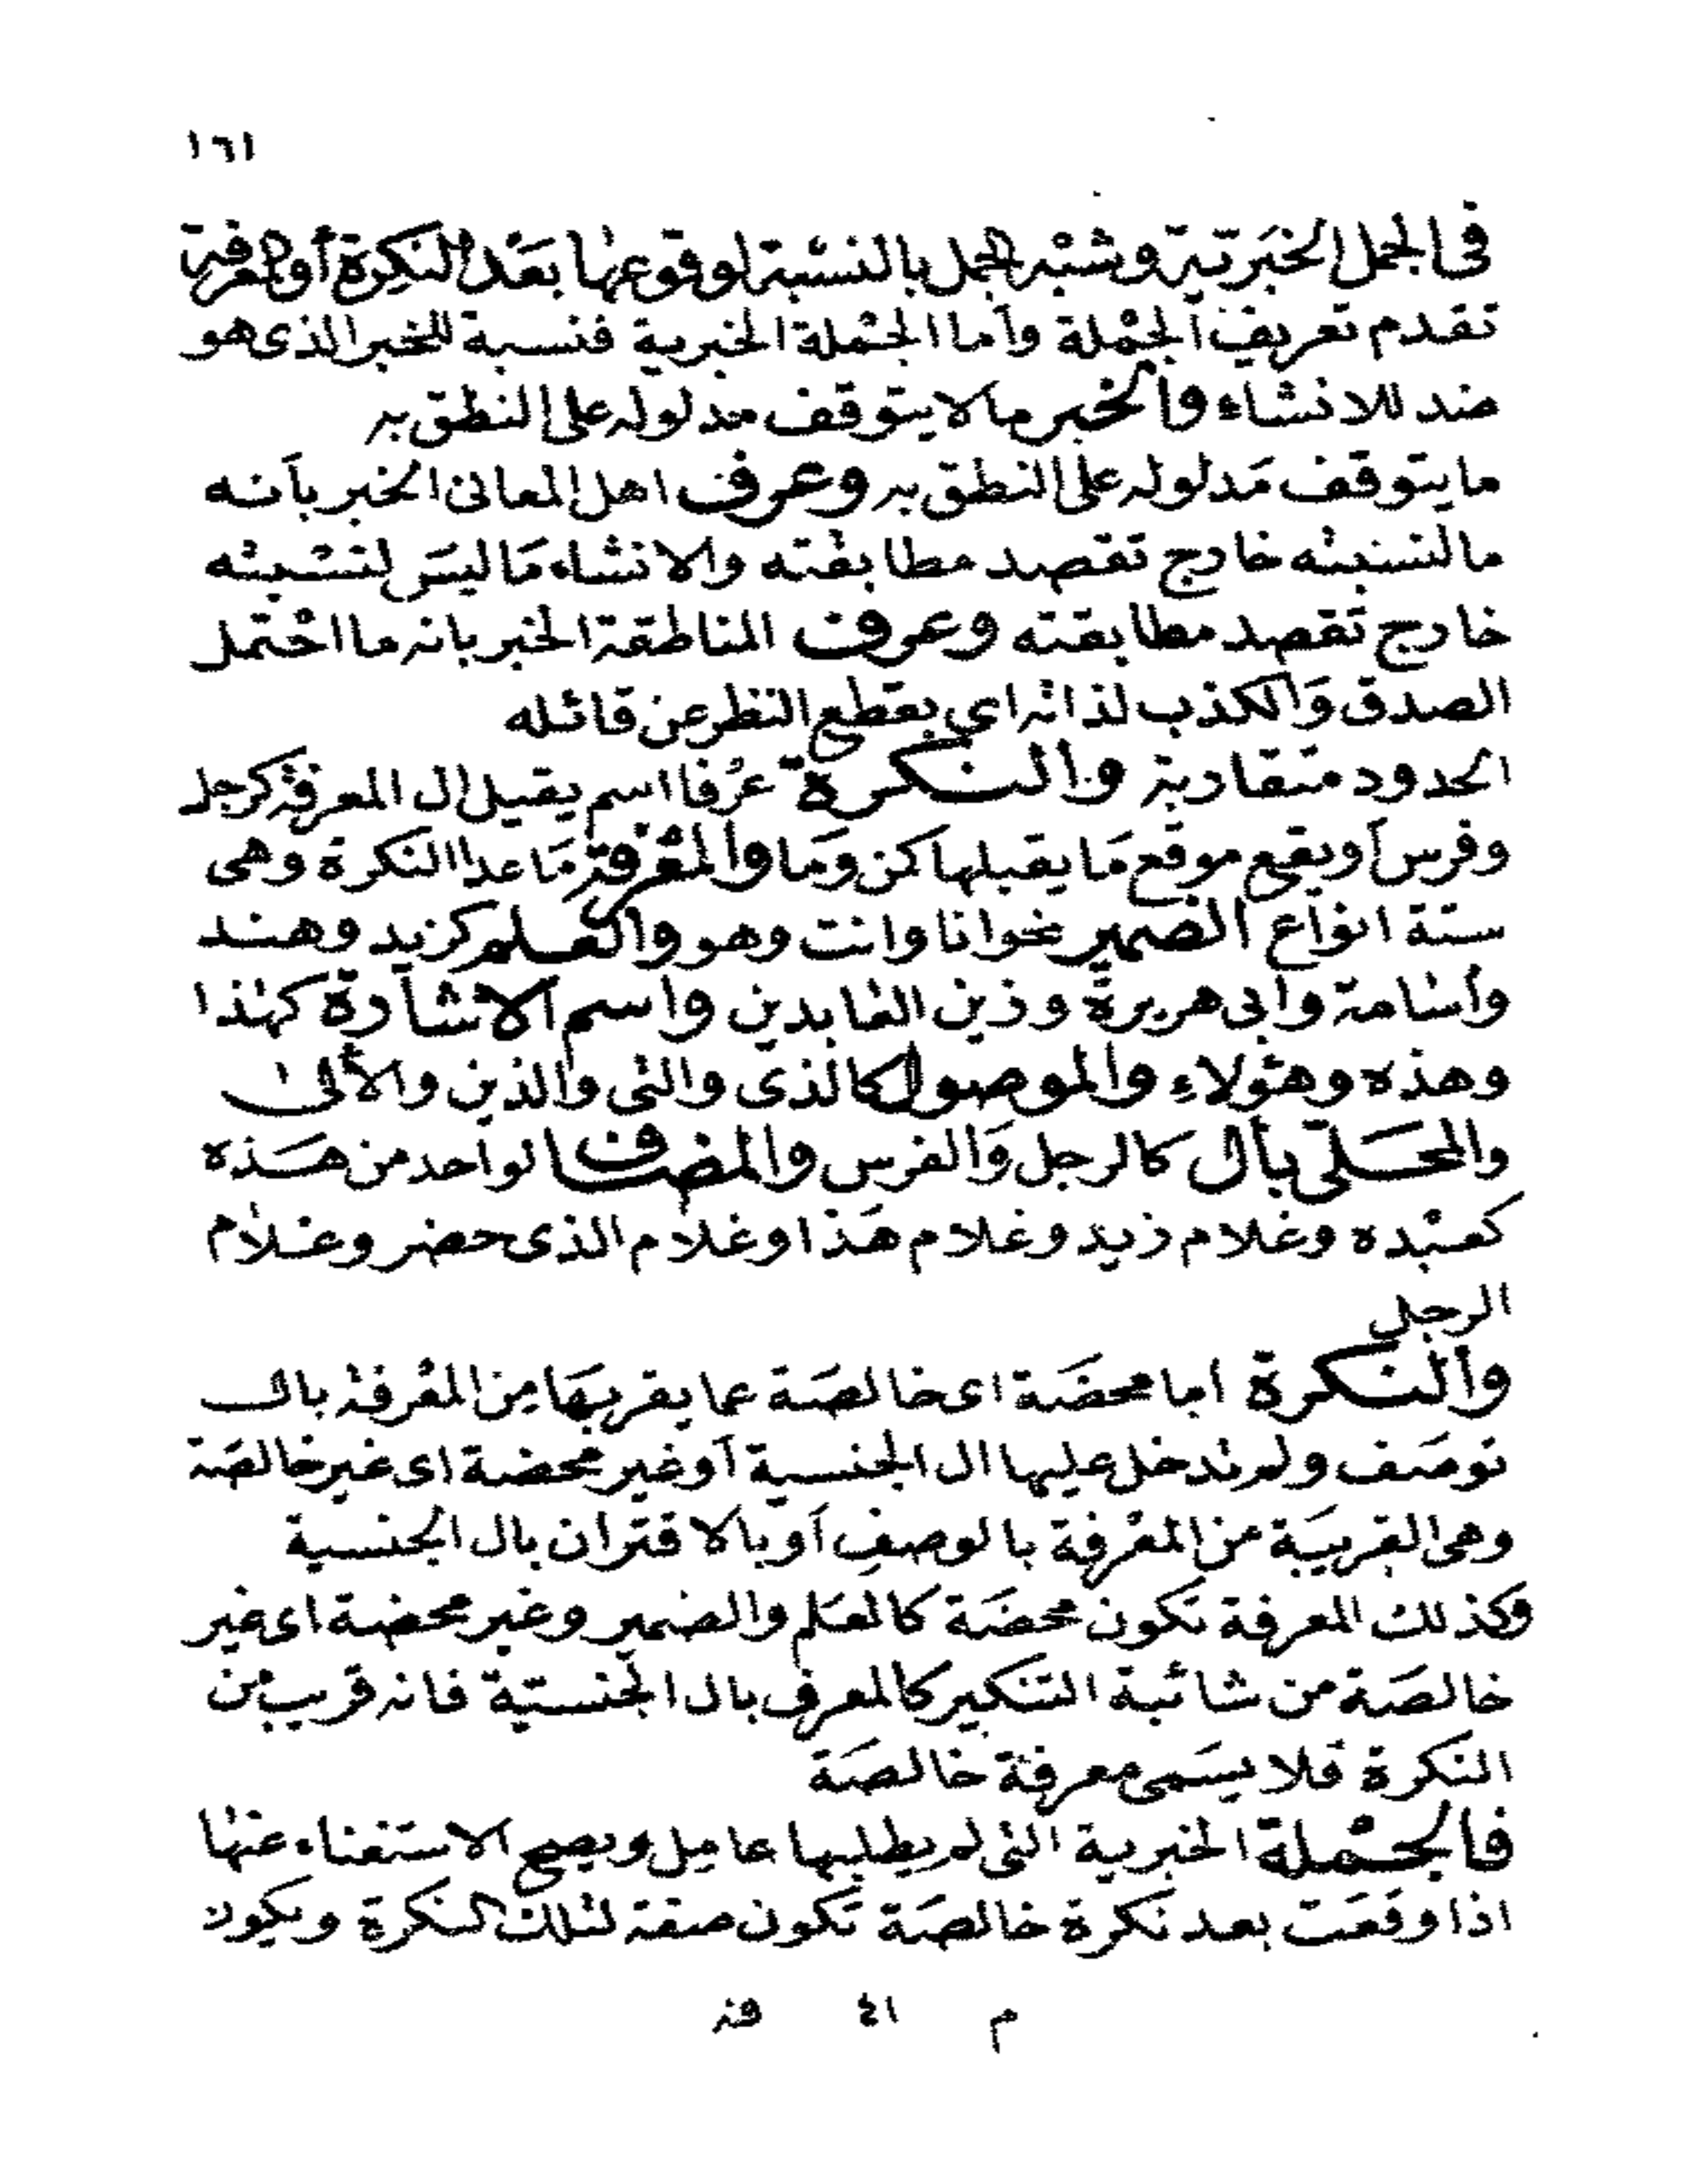 ١٦١
في الجمل الخبرية وشبه الجمل بالنسبة لوقوعها بعد النكرة أو المعرفة
تقدم تعريف الجملة وأما الجملة الخبرية فنسبة للخبر الذى هو
ضد للانشاء والخبر ما لا يتوقف مدلوله على النطق به
ما يتوقف مدلوله على النطق به وعرف اهل المعانى الخبر بأنه
ما لنسبته خارج تقصد مطابقته والانشاء ما ليس لنسبته
خارج تقصد مطابقته وعرف المناطقة الخبر بانه ما احتمل
الصدق والكذب لذاته اى بقطع النظر عن قائله
الحدود متقاربة والنكرة عرفا اسم يقبل ال المعرفة كرجل
وفرس أو يقع موقع ما يقبلها كمن وما والمعرفة ما عدا النكرة وهى
ستة انواع الضمير نحو انا وانت وهو والعلم كزيد وهند
وأسامة وابى هريرة وزين العابدين واسم الاشارة كهذا
وهذه وهؤلاء والموصول كالذى والتى والذين والألى
والمحلى بأل كالرجل والفرس والمضاف لواحد من هذه
كعبده وغلام زيد وغلام هذا وغلام الذى حضر وغلام
الرجل
والنكرة اما محضة اى خالصة عما يقربها من المعرفة بان
توصف ولم تدخل عليها ال الجنسية أو غير محضة اى غير خالصة
وهى القريبة من المعرفة بالوصف أو بالاقتران بال الجنسية
وكذلك المعرفة تكون محضة كالعلم والضمير وغير محضة اى غير
خالصة من شائبة التنكير كالمعرف بال الجنسية فانه قريب من
النكرة فلا يسمى معرفة خالصة
فالجملة الخبرية التى لم يطلبها عامل ويصح الاستغناء عنها
اذا وقعت بعد نكرة خالصة تكون صفة لتلك النكرة ويكون
م ٤١